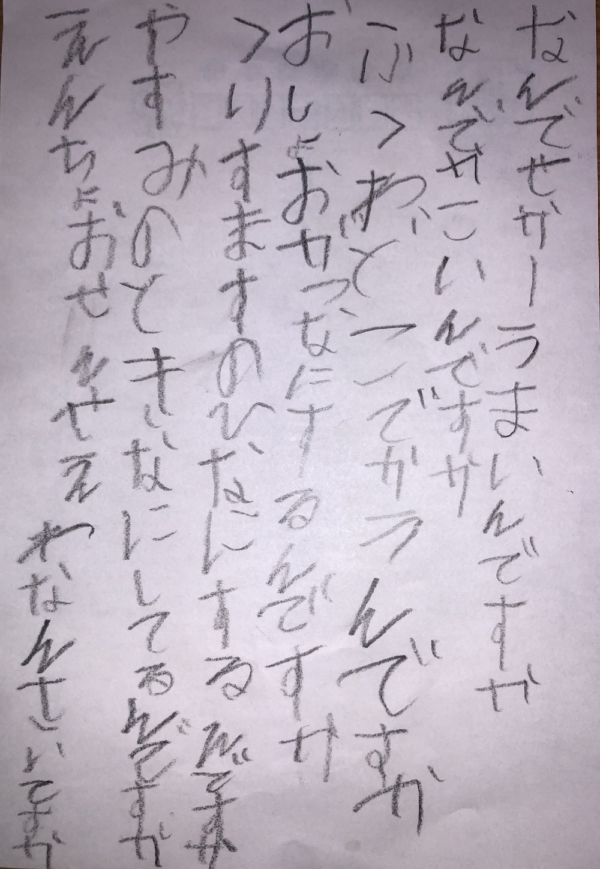 なんでせかーうまいんですか
なんでかこいんですか
ふくわどーこでかうんですか
おしょおがつなにするんですか
くりすますのひなにするんですか
やすみのときなにしてるんですか
えんちょおせんせえわなんさいですか